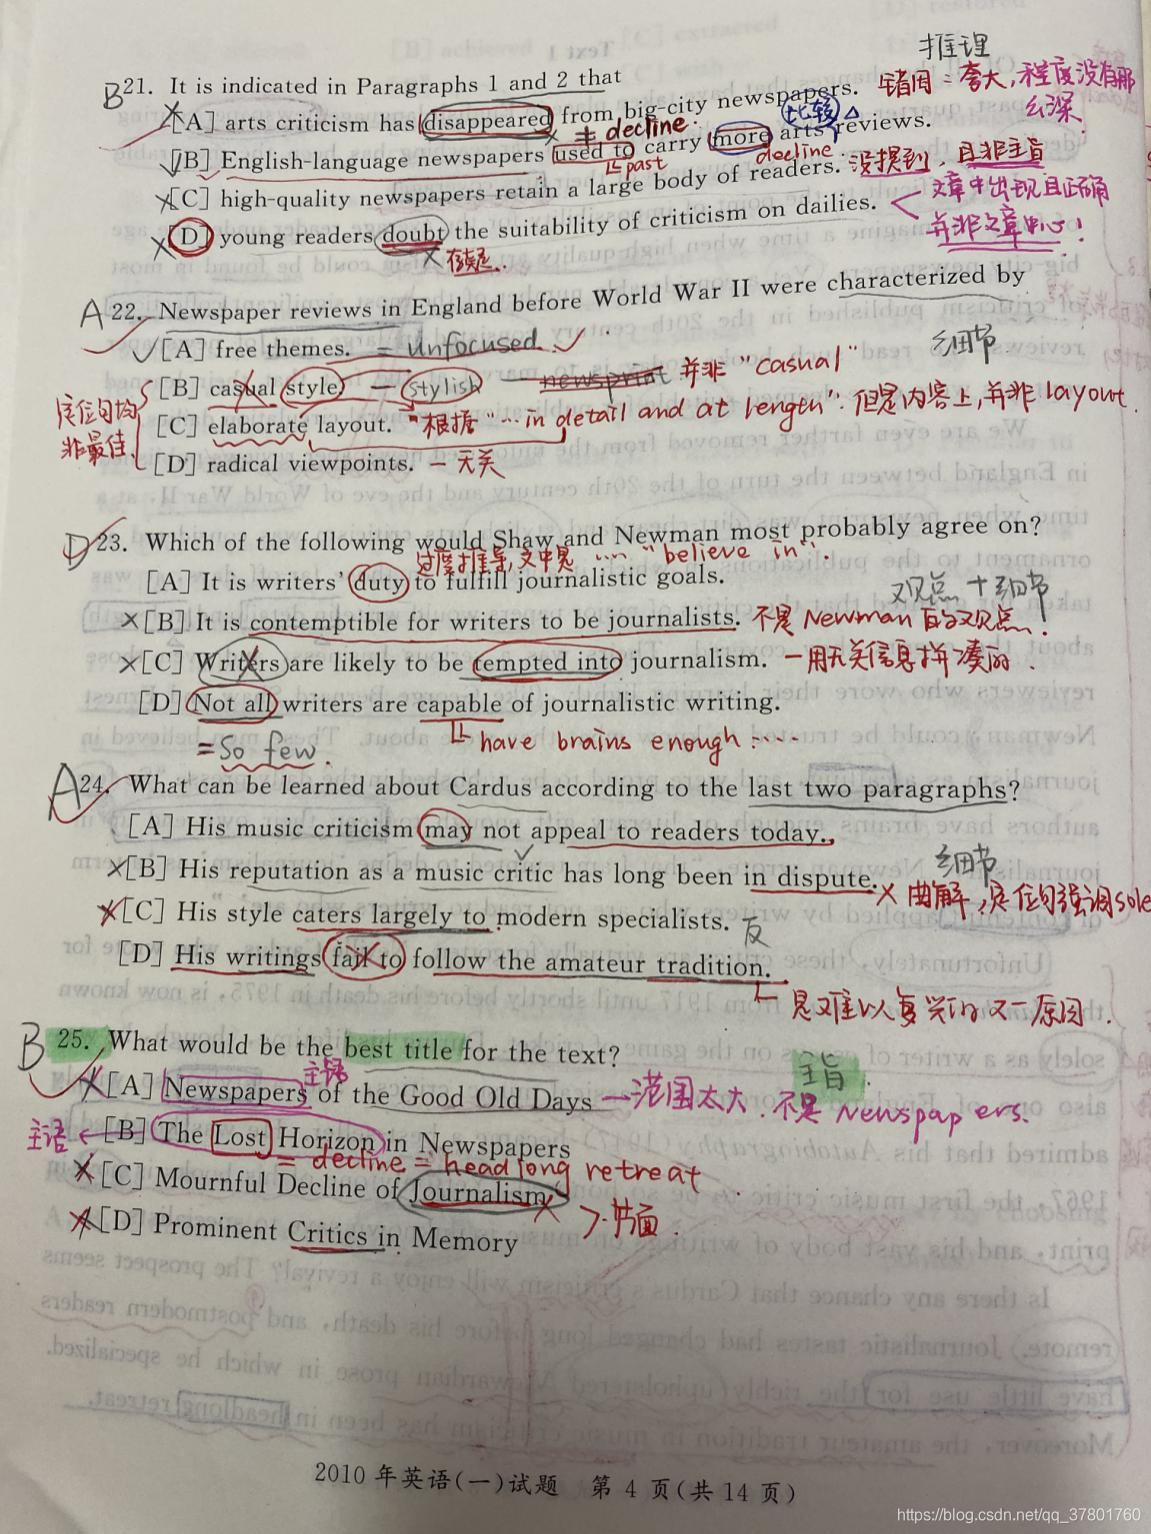 推理
B 21. It is indicated in Paragraphs 1 and 2 that
错因：夸大，程度没有那么深
[A] arts criticism has disappeared from big-city newspapers.
≠ decline. 比较
[B] English-language newspapers used to carry more arts reviews.
past decline
[C] high-quality newspapers retain a large body of readers. 没提到，且非主旨
[D] young readers doubt the suitability of criticism on dailies. 文章中出现且正确
并非文章中心！
存疑
A 22. Newspaper reviews in England before World War II were characterized by
细节
[A] free themes. = Unfocused.
[B] casual style — stylish newsprint 并非 "casual"
定位句均非最佳
[C] elaborate layout. 根据 "… in detail and at length"：但是内容上，并非 layout.
[D] radical viewpoints. — 无关
D 23. Which of the following would Shaw and Newman most probably agree on?
过度推导，文中是 …… "believe in".
[A] It is writers' duty to fulfill journalistic goals.
观点 + 细节
[B] It is contemptible for writers to be journalists. 不是 Newman 的观点！
[C] Writers are likely to be tempted into journalism. — 用无关信息拼凑的.
[D] Not all writers are capable of journalistic writing.
= So few. have brains enough ……
A 24. What can be learned about Cardus according to the last two paragraphs?
[A] His music criticism may not appeal to readers today.
细节
[B] His reputation as a music critic has long been in dispute. × 曲解，定位句强调 sole
[C] His style caters largely to modern specialists.
反
[D] His writings fail to follow the amateur tradition.
是难以复兴的又一原因.
B 25. What would be the best title for the text?
主旨
主语
[A] Newspapers of the Good Old Days — 范围太大. 不是 Newspapers.
主语 ← [B] The Lost Horizon in Newspapers
= decline = headlong retreat
[C] Mournful Decline of Journalism
片面
[D] Prominent Critics in Memory
2010 年英语(一)试题 第 4 页(共 14 页)
https://blog.csdn.net/qq_37801760